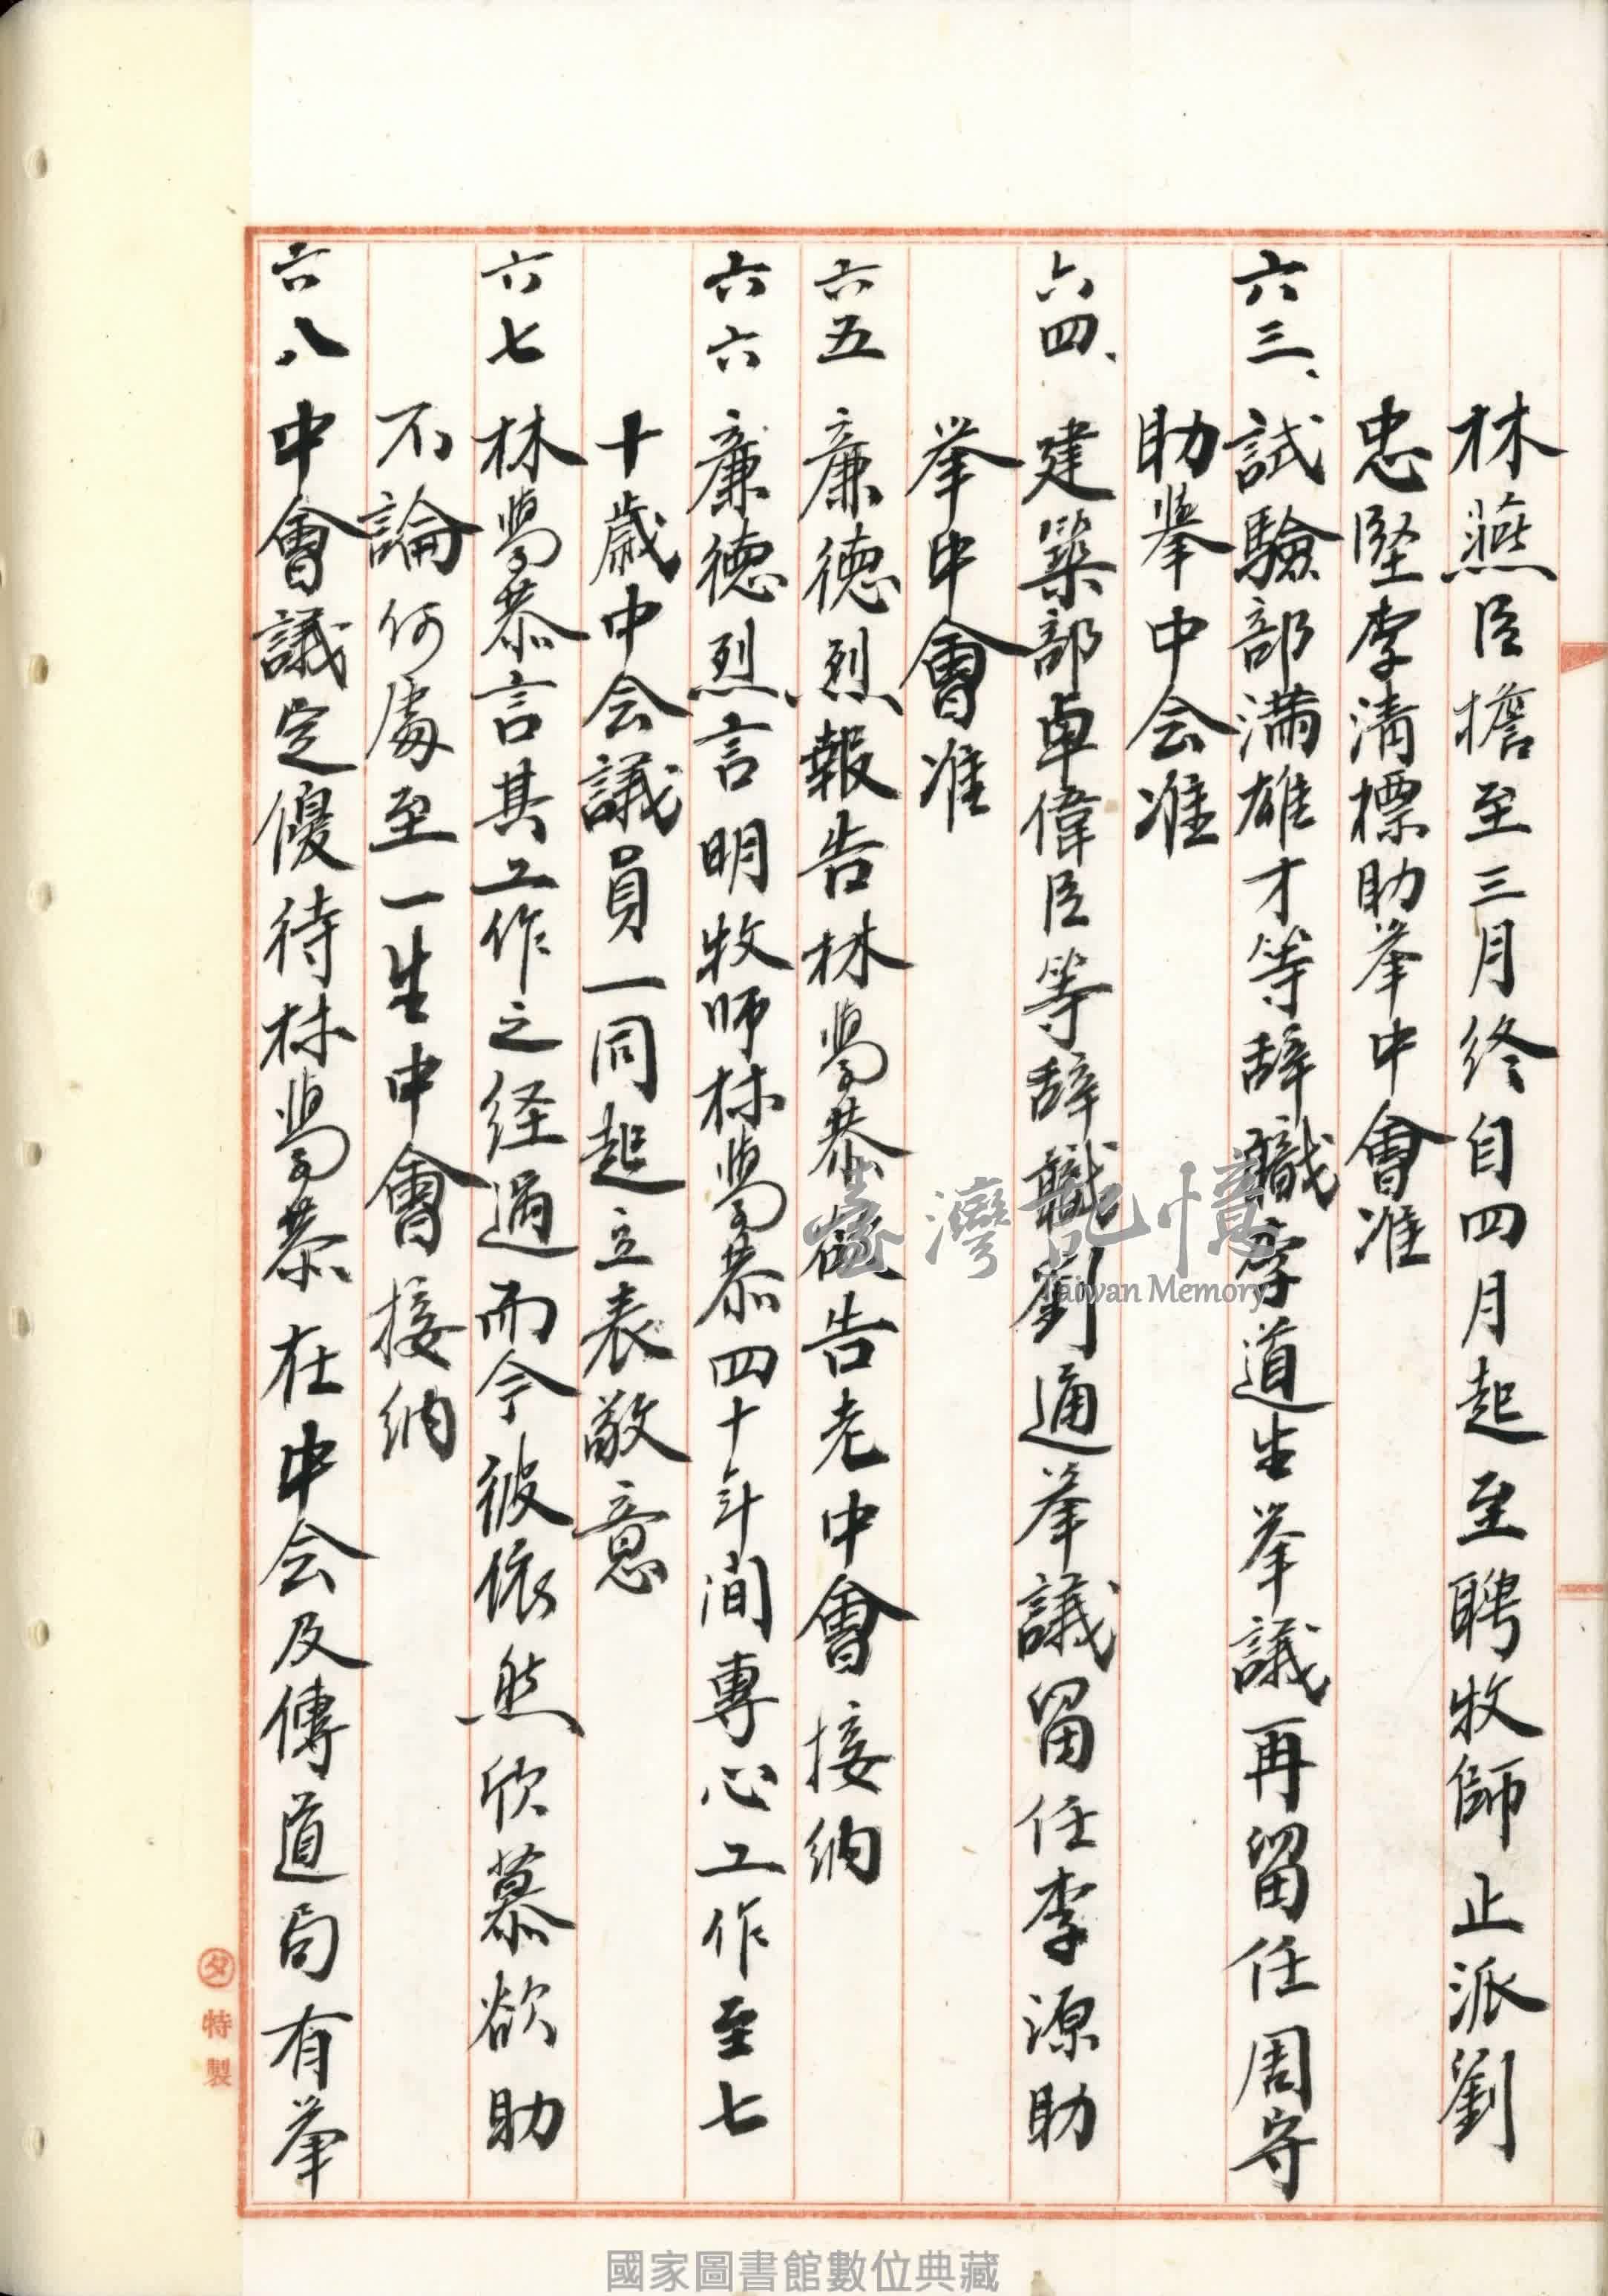 林燕臣擔至三月終自四月起至聘牧師止派劉
忠堅李清標助挙中會准
六三、試驗部满雄才等辞職李道生挙議再留任周守
助挙中会准
六四、建築部卓偉臣等辞職劉通挙議留任李源助
挙中會准
六五 廉德烈報告林學恭 告老中會接納
六六 廉德烈言明牧师林學恭四十年间專心工作至七
十歲中会議員一同起立表敬意
六七 林學恭言其工作之経過而今彼依然欣慕欲助
不論何處至一生中會接納
六八 中會議定優待林學恭在中会及傳道局有挙
特製
臺灣記憶
Taiwan Memory
國家圖書館數位典藏